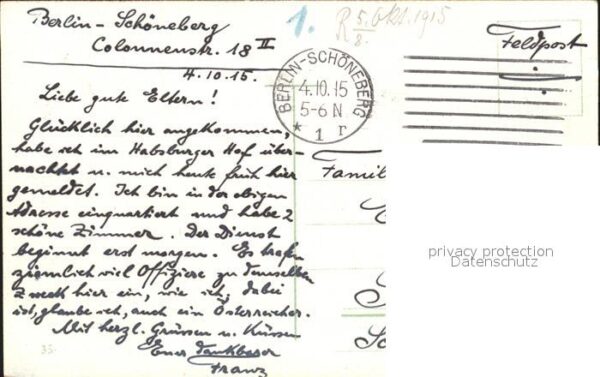 Berlin-Schöneberg
Colonnenstr. 18 II
4.10.15.
Liebe gute Eltern!
Glücklich hier angekommen,
habe ich im Habsburger Hof über-
nachtet u. mich heute früh hier
gemeldet. Ich bin in der obigen
Adresse einquartiert und habe 2
schöne Zimmer. Der Dienst
beginnt erst morgen. Es trafen
ziemlich viel Offiziere zu demselben
Zweck hier ein, wie ich, dabei
ist, glaube ich, auch ein Österreicher.
Mit herzl. Grüssen u. Küssen
Euer dankbarer
Franz
35
1.
R 5. Okt. 1915
8.
Feldpost
BERLIN-SCHÖNEBERG
4.10.15
5-6 N
* 1 r
Famil
privacy protection
Datenschutz